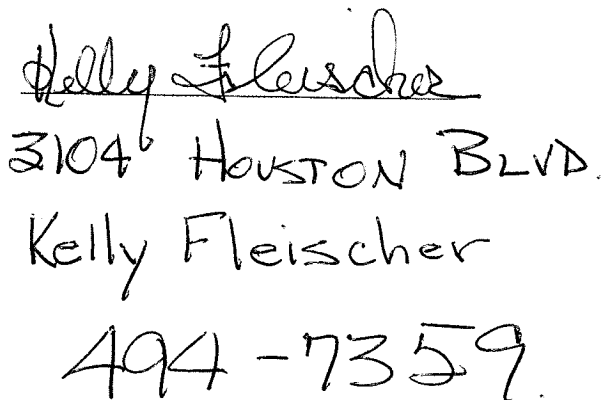 Kelly Fleischer
3104 HOUSTON BLVD.
Kelly Fleischer
494-7359